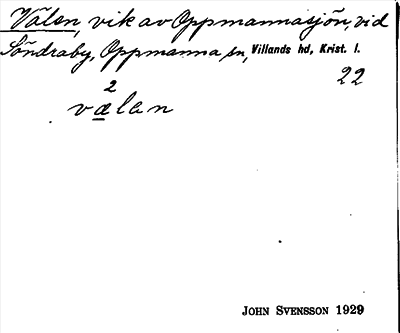 Välen, vik av Oppmannasjön, vid
Söndraby, Oppmanna sn, Villands hd, Krist. l.
22
2
välen
JOHN SVENSSON 1929